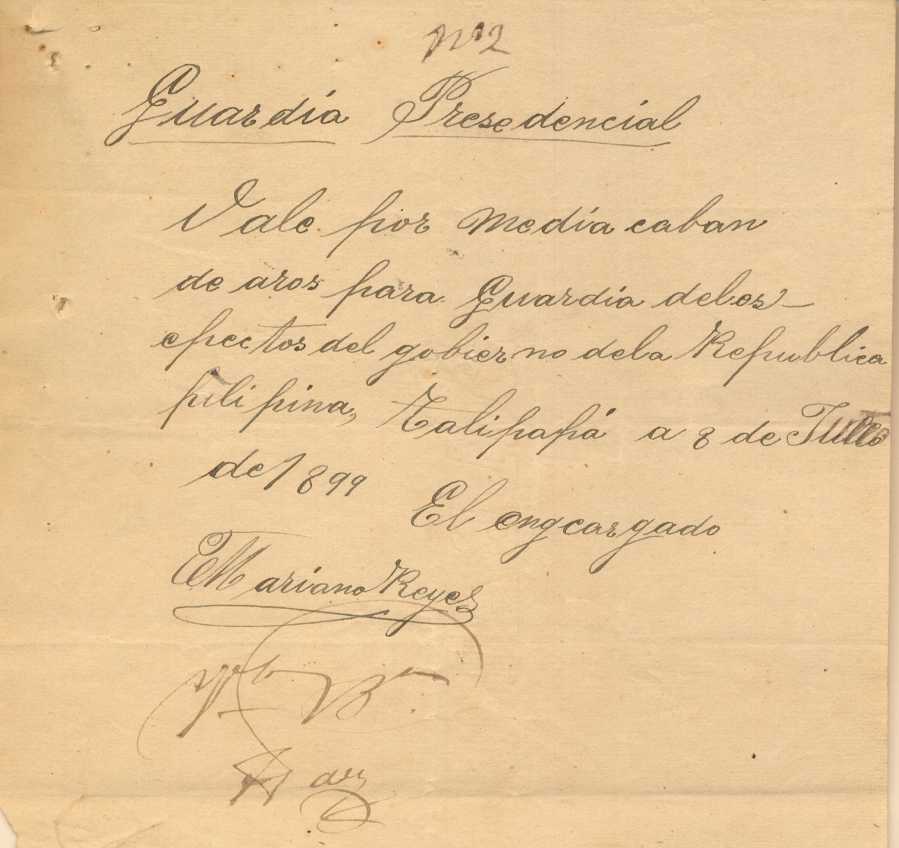 Nº 2
Guardia Presedencial
Vale por media caban
de aros para Guardia delos
epectos del gobierno dela Republica
pilipina, Talipapá a 8 de Julio
de 1899
El engcargado
Mariano Reyes
Vº Bº